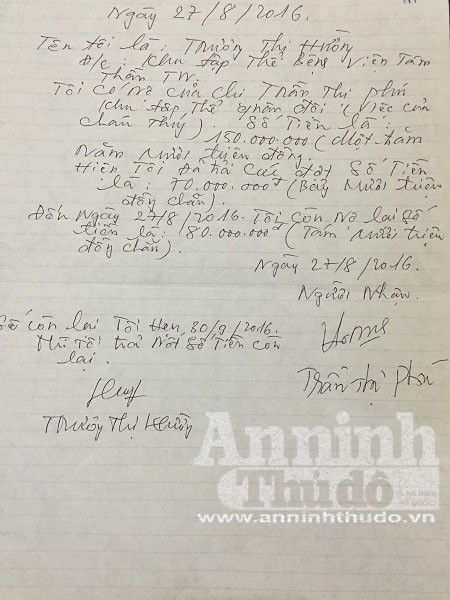 Ngày 27/8/2016.
Tên tôi là: Trương Thị Hường
Đ/c: Khu tập Thể Bệnh Viện Tâm
Thần TW.
Tôi có nợ của Chị Trần Thị Phú
Khu tập Thể quân đội (Việc của
cháu Thuỷ). Số Tiền là:
150.000.000 (Một trăm
Năm Mươi triệu đồng.
Hiện Tôi Đã trả Các đợt Số Tiền
là: 70.000.000đ (Bảy Mươi triệu
đồng chẵn).
Đến Ngày 27/8/2016. Tôi Còn Nợ lại Số
tiền là: 80.000.000đ (Tám Mươi triệu
đồng chẵn).
Ngày 27/8/2016.
Người Nhận.
Số còn lại Tôi Hẹn, 30/9/2016.
Tôi trả Nốt Số Tiền còn
lại.
Trần Thị Phú
Trương Thị Hường
An ninh
Thủ đô
www.anninhthudo.vn